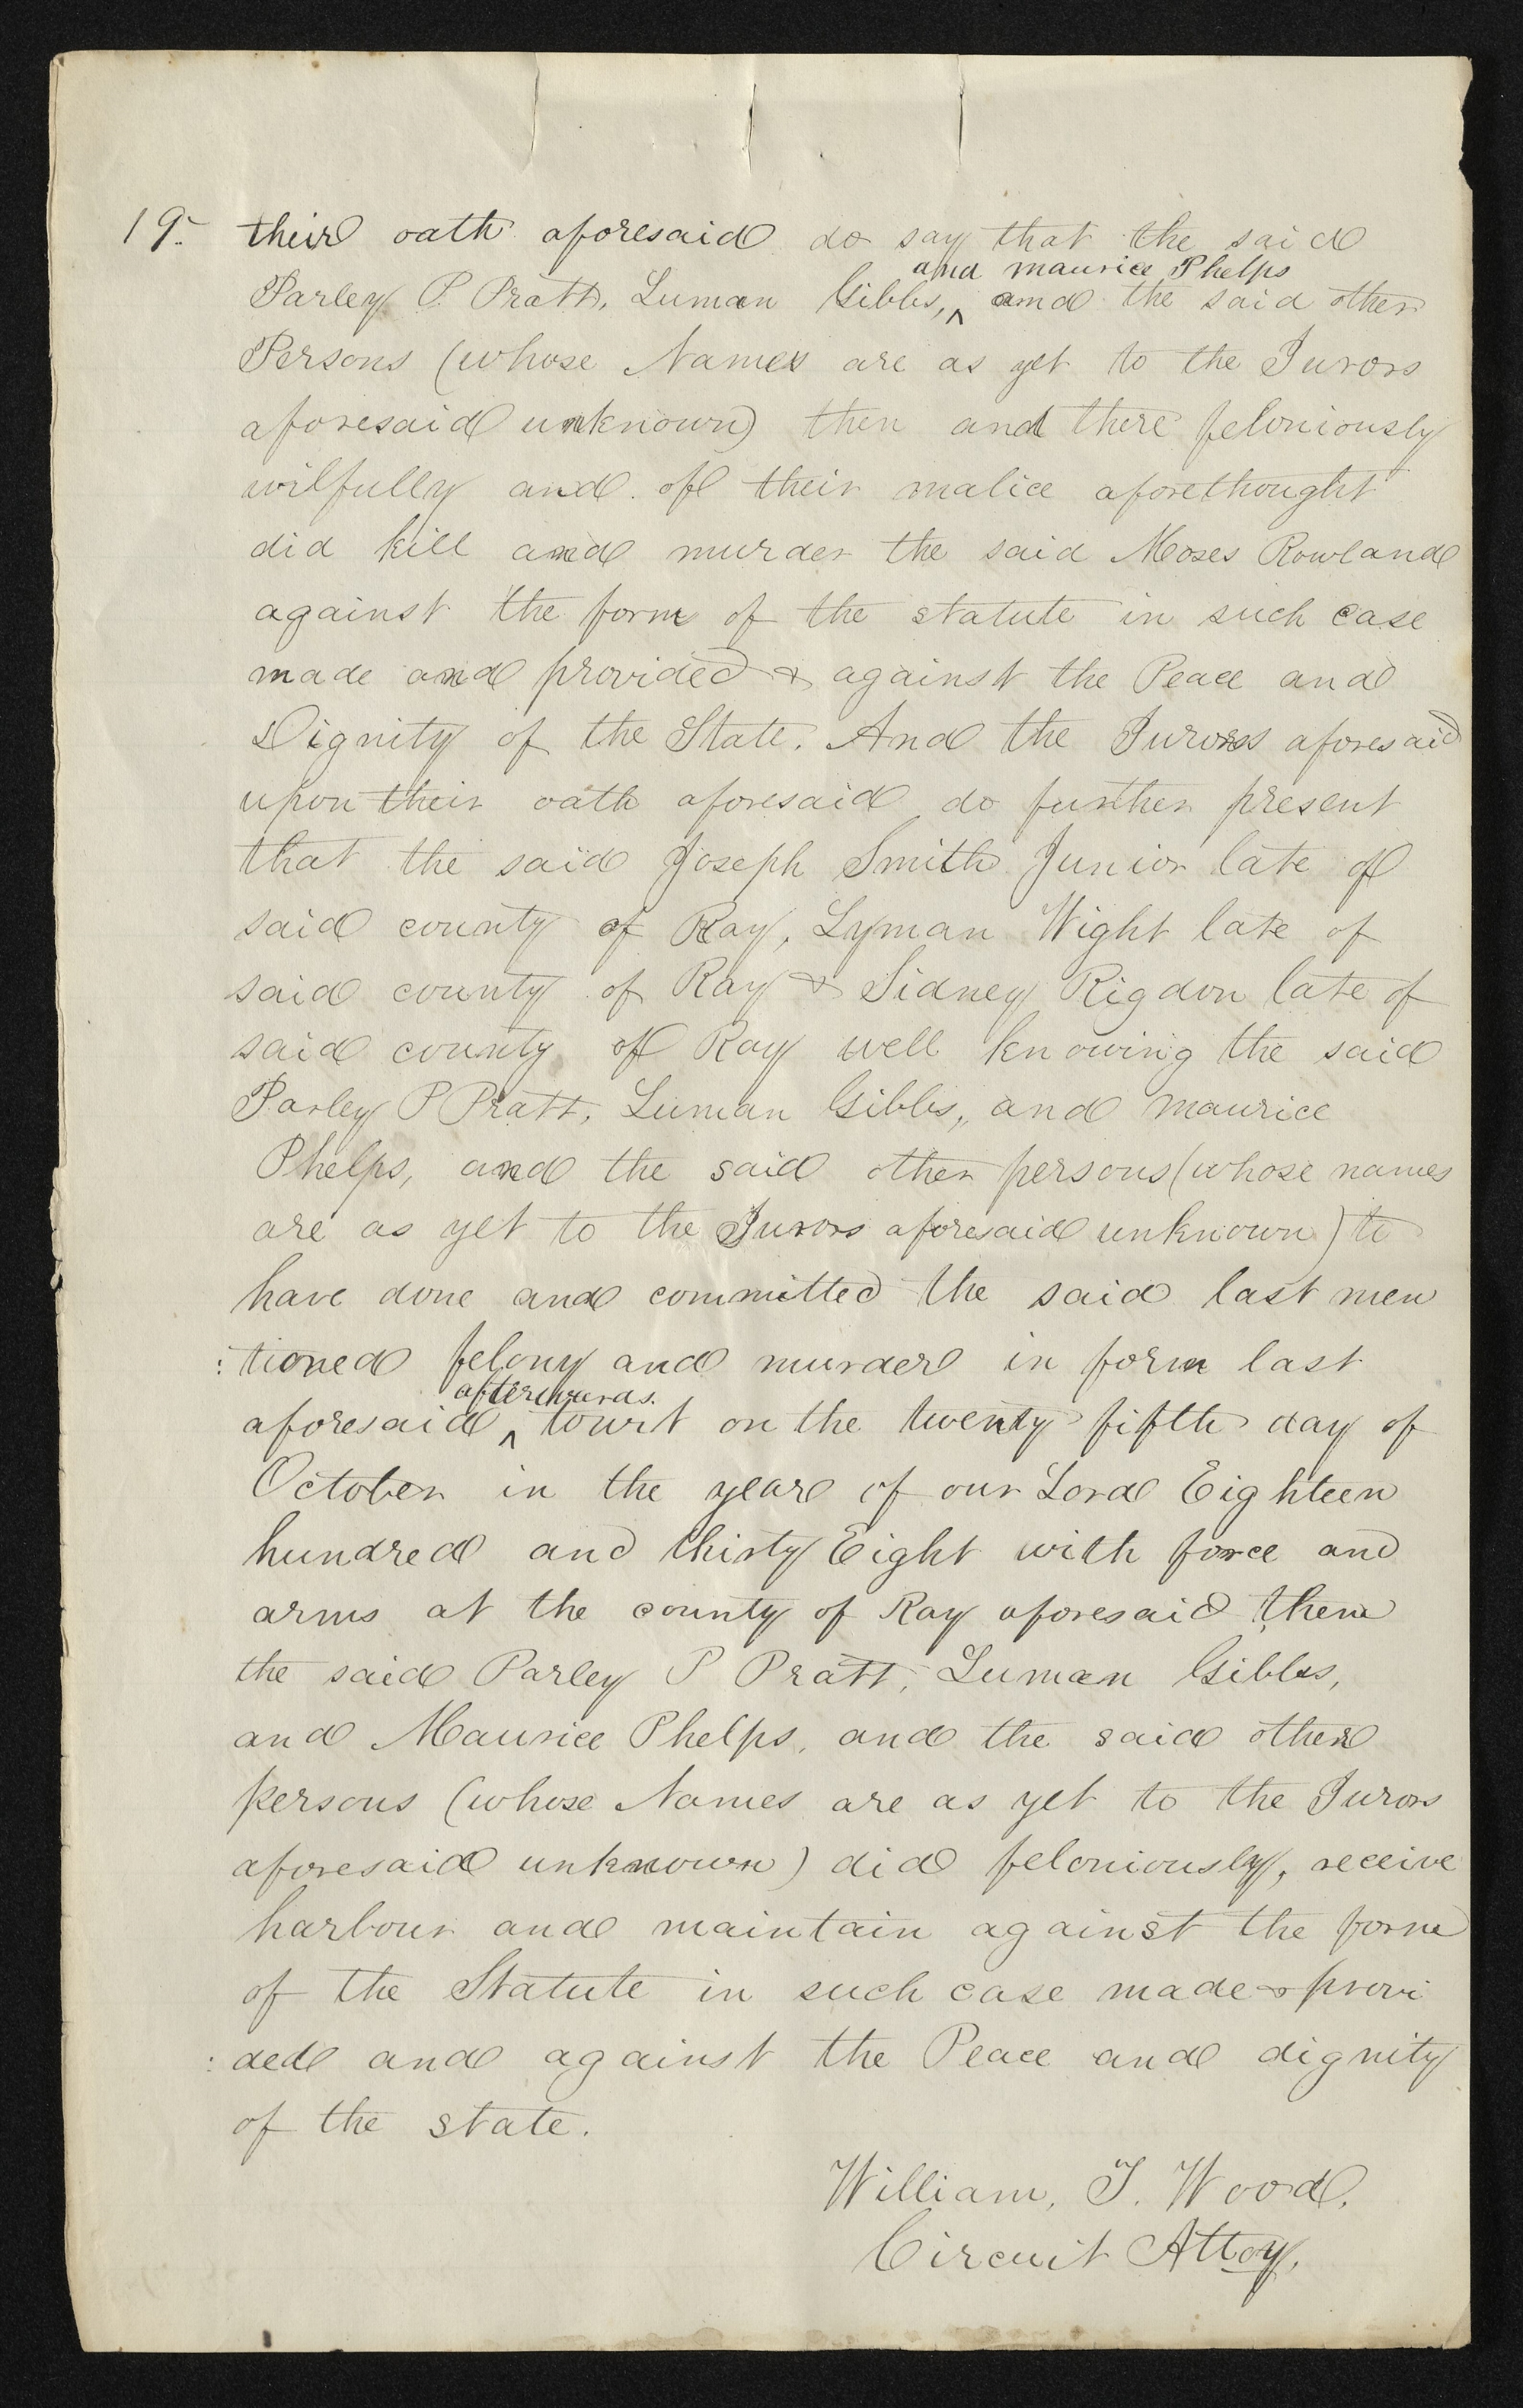 19. their oath aforesaid do say that the said
and maurice Phelps
Parley P. Pratt, Luman Gibbs, ^ and the said other
Persons (whose Names are as yet to the Jurors
aforesaid unknown) then and there feloniously
wilfully and of their malice aforethought
did kill and murder the said Moses Rowland
against the form of the statute in such case
made and provided & against the Peace and
Dignity of the State. And the Jurors aforesaid
upon their oath aforesaid do further present
that the said Joseph Smith Junior late of
said county of Ray, Lyman Wight late of
said county of Ray & Sidney Rigdon late of
said county of Ray well knowing the said
Parley P Pratt, Luman Gibbs, and maurice
Phelps, and the said other persons (whose names
are as yet to the Jurors aforesaid unknown) to
have done and committed the said last men
:tioned felony and murder in form last
afterwards.
aforesaid ^ towit on the twenty fifth day of
October in the year of our Lord Eighteen
hundred and thirty Eight with force and
arms at the county of Ray aforesaid them
the said Parley P Pratt, Luman Gibbs,
and Maurice Phelps, and the said other
persons (whose Names are as yet to the Jurors
aforesaid unknown) did feloniously, receive
harbour and maintain against the form
of the Statute in such case made & provi
:ded and against the Peace and dignity
of the state.
William, T. Wood,
Circuit Attoy,